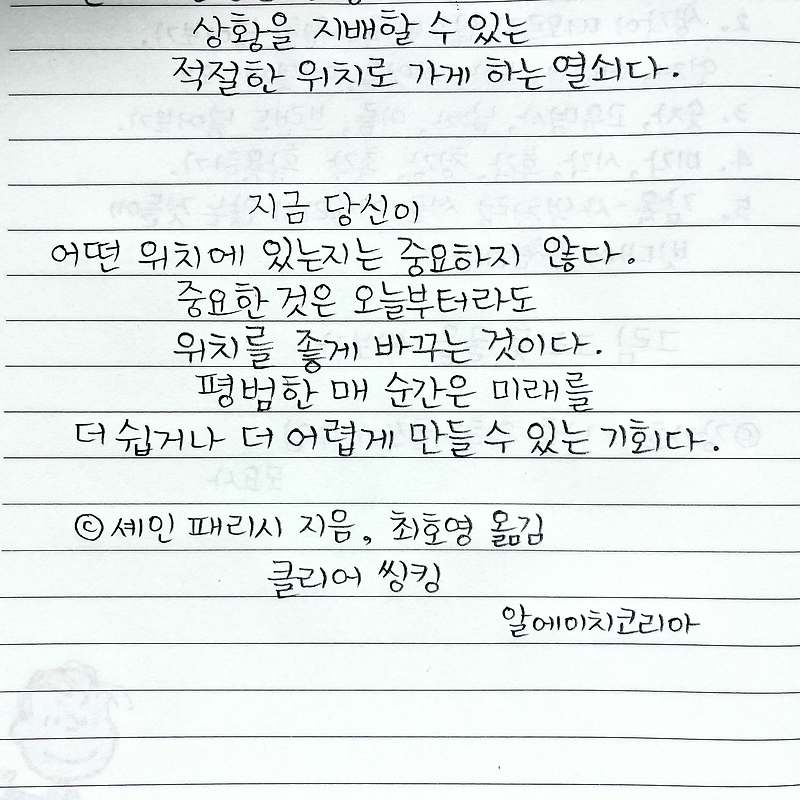 상황을 지배할 수 있는
적절한 위치로 가게 하는 열쇠다.
지금 당신이
어떤 위치에 있는지는 중요하지 않다.
중요한 것은 오늘부터라도
위치를 좋게 바꾸는 것이다.
평범한 매 순간은 미래를
더 쉽거나 더 어렵게 만들 수 있는 기회다.
ⓒ 셰인 패리시 지음, 최호영 옮김
클리어 씽킹
알에이치코리아